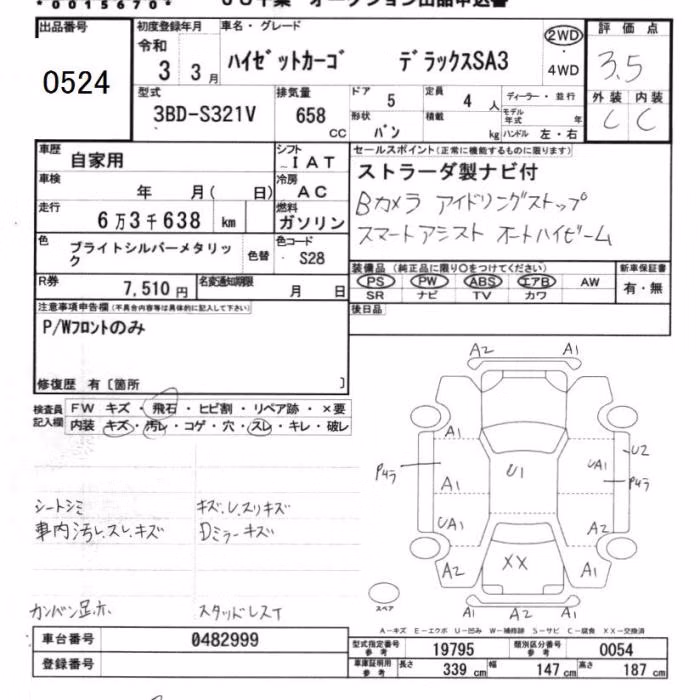 *0015670*
出品番号 0524
初度登録年月 令和 3 3月
車名・グレード
ハイゼットカーゴ デラックスSA3
2WD・4WD
評価点 3.5
外装 内装
C C
型式 3BD-S321V
排気量 658 CC
ドア 5 定員 4 人
形状 バン 積載 kg
ディーラー・並行
モデル年式 年
ハンドル 左・右
車歴 自家用
シフト IAT
車検 年 月( 日)
冷房 AC
走行 6万3千638 km
燃料 ガソリン
色 ブライトシルバーメタリック 色替
色コード S28
R券 7,510円 名変通知期限 月 日
セールスポイント(正常に機能するものに限ります)
ストラーダ製ナビ付
Bカメラ アイドリングストップ
スマートアシスト オートハイビーム
装備品(純正品に限り○をつけてください) 新車保証書
PS PW ABS エアB AW 有・無
SR ナビ TV カワ
後日品
注意事項申告欄(不具合内容等は具体的に記入して下さい)
P/Wフロントのみ
修復歴 有〔箇所 〕
検査員記入欄
FW キズ・飛石・ヒビ割・リペア跡・×要
内装 キズ・汚レ・コゲ・穴・スレ・キレ・破レ
シートシミ キズ、U、スリキズ
車内汚レ、スレ、キズ Dミラーキズ
スタッドレスT
A2 A1
A1
P4ラ A1 U1 UA1 U2 P4ラ
UA1 A2
A2 XX A1
A1 A2 A1
スペア
A-キズ E-エクボ U-凹み W-補修跡 S-サビ C-腐食 XX-交換済
車台番号 0482999
登録番号
型式指定番号 参考 19795 類別区分番号 参考 0054
車庫証明用 参考 長さ 339 cm 幅 147 cm 高さ 187 cm